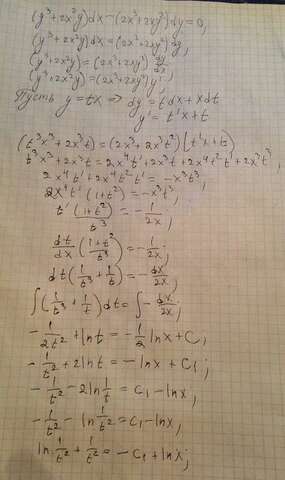 (y³+2x²y)dx-(2x³+2xy²)dy=0,
(y³+2x²y)dx=(2x³+2xy²)dy;
(y³+2x²y)=(2x³+2xy²)dy/dx;
(y³+2x²y)=(2x³+2xy²)y';
Пусть y=tx => dy=t dx+xdt
y'=t'x+t
(t³x³+2x³t)=(2x³+2x³t²)(t'x+t)
t³x³+2x³t=2x⁴t'+2x³t+2x⁴t²t'+2x³t³;
2x⁴t'+2x⁴t²t'=-x³t³;
2x⁴t'(1+t²)=-x³t³;
t'(1+t²)/t³=-1/2x;
dt/dx(1+t²/t³)=-1/2x;
dt(1/t³+1/t)=-dx/2x;
∫(1/t³+1/t)dt=∫-dx/2x;
-1/2t²+lnt=-1/2lnx+C;
-1/t²+2lnt=-lnx+C₁;
-1/t²-2ln1/t=C₁-lnx;
-1/t²-ln1/t²=C₁-lnx;
ln1/t²+1/t²=-C₁+lnx;